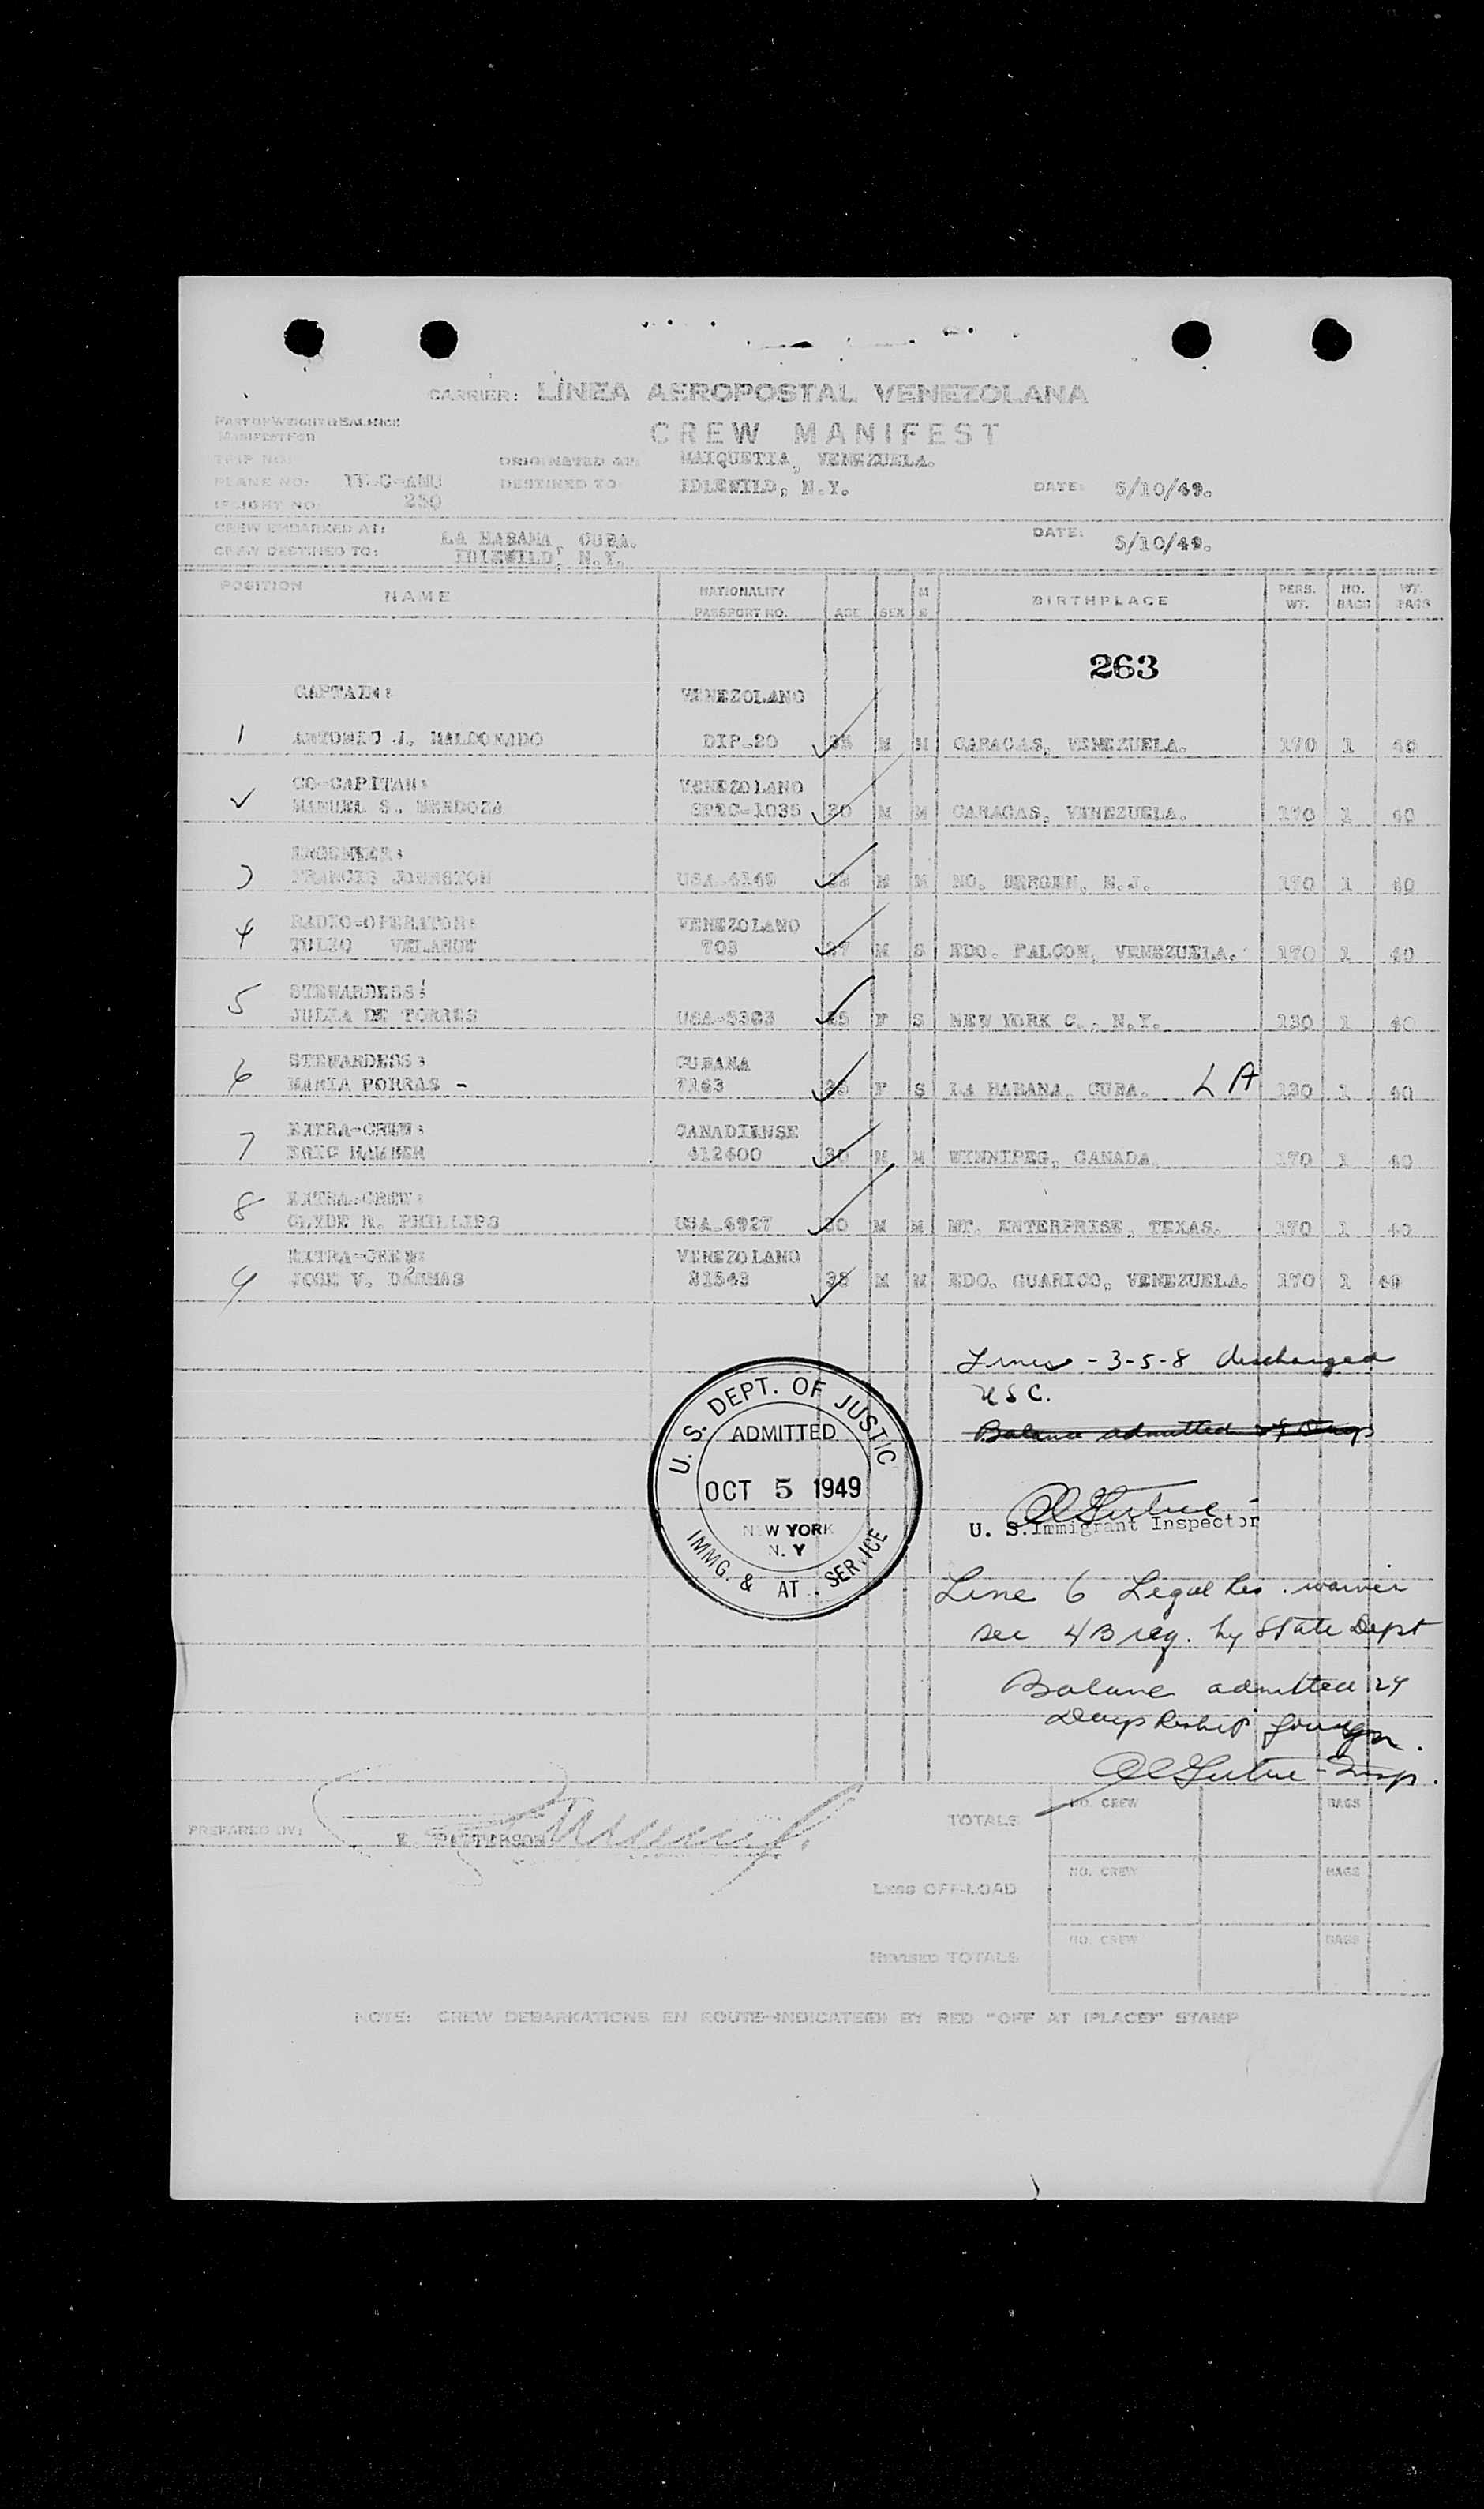 CARRIER: LINEA AEROPOSTAL VENEZOLANA
PART OF WEIGHT & BALANCE
MANIFEST FOR
CREW MANIFEST
TRIP NO:
ORIGINATED AT: MAIQUETIA, VENEZUELA.
PLANE NO: YV-C-ANU DESTINED TO: IDLEWILD, N.Y. DATE: 5/10/49.
FLIGHT NO: 250
CREW EMBARKED AT: LA HABANA, CUBA. DATE: 5/10/49.
CREW DESTINED TO: IDLEWILD, N.Y.
POSITION NAME NATIONALITY PASSPORT NO. AGE SEX M S BIRTHPLACE PERS. WT. NO. BAGS WT. BAGS
263
CAPTAIN: VENEZOLANO
1 ANTONIO J. MALDONADO DIP-20 35 M M CARACAS, VENEZUELA. 170 1 40
CO-CAPITAN: VENEZOLANO
MANUEL S. MENDOZA SPEC-1035 30 M M CARACAS, VENEZUELA. 170 1 40
ENGENEER:
3 FRANCIS JOHNSTON USA-4149 M M NO. BERGEN, N.J. 170 1 40
RADIO-OPERATOR: VENEZOLANO
4 TULIO VELARDE 703 27 M S EDO. FALCON, VENEZUELA. 170 1 40
STEWARDESS:
5 JULIA DE TORRES USA-5363 25 F S NEW YORK C., N.Y. 130 1 40
STEWARDESS: CUBANA
6 MARIA PORRAS - 7163 F S LA HABANA, CUBA. L A 130 1 40
EXTRA-CREW: CANADIENSE
7 ERIC HAMBER 412600 30 M M WINNIPEG, CANADA 170 1 40
EXTRA-CREW:
8 CLYDE R. PHILLIPS USA-6927 30 M M MT. ENTERPRISE, TEXAS. 170 1 40
EXTRA-CREW: VENEZOLANO
9 JOSE V. 31543 35 M M EDO. GUARICO, VENEZUELA. 170 1 40
Lines - 3-5-8 discharged
USC.
Balance admitted 29 Days
U. S. DEPT. OF JUSTIC
ADMITTED
OCT 5 1949
NEW YORK
N. Y
IMMG. & AT . SERVICE
U. S. Immigrant Inspector
Line 6 Legal Res. waiver
sec 4B reg. by State Dept
Balance admitted 29
Days Reship foreign.
Insp.
PREPARED BY: E. PATTERSON
TOTALS NO. CREW BAGS
LESS OFF-LOAD NO. CREW BAGS
REVISED TOTALS NO. CREW BAGS
NOTE: CREW DEBARKATIONS EN ROUTE-INDICATED BY RED "OFF AT (PLACE)" STAMP